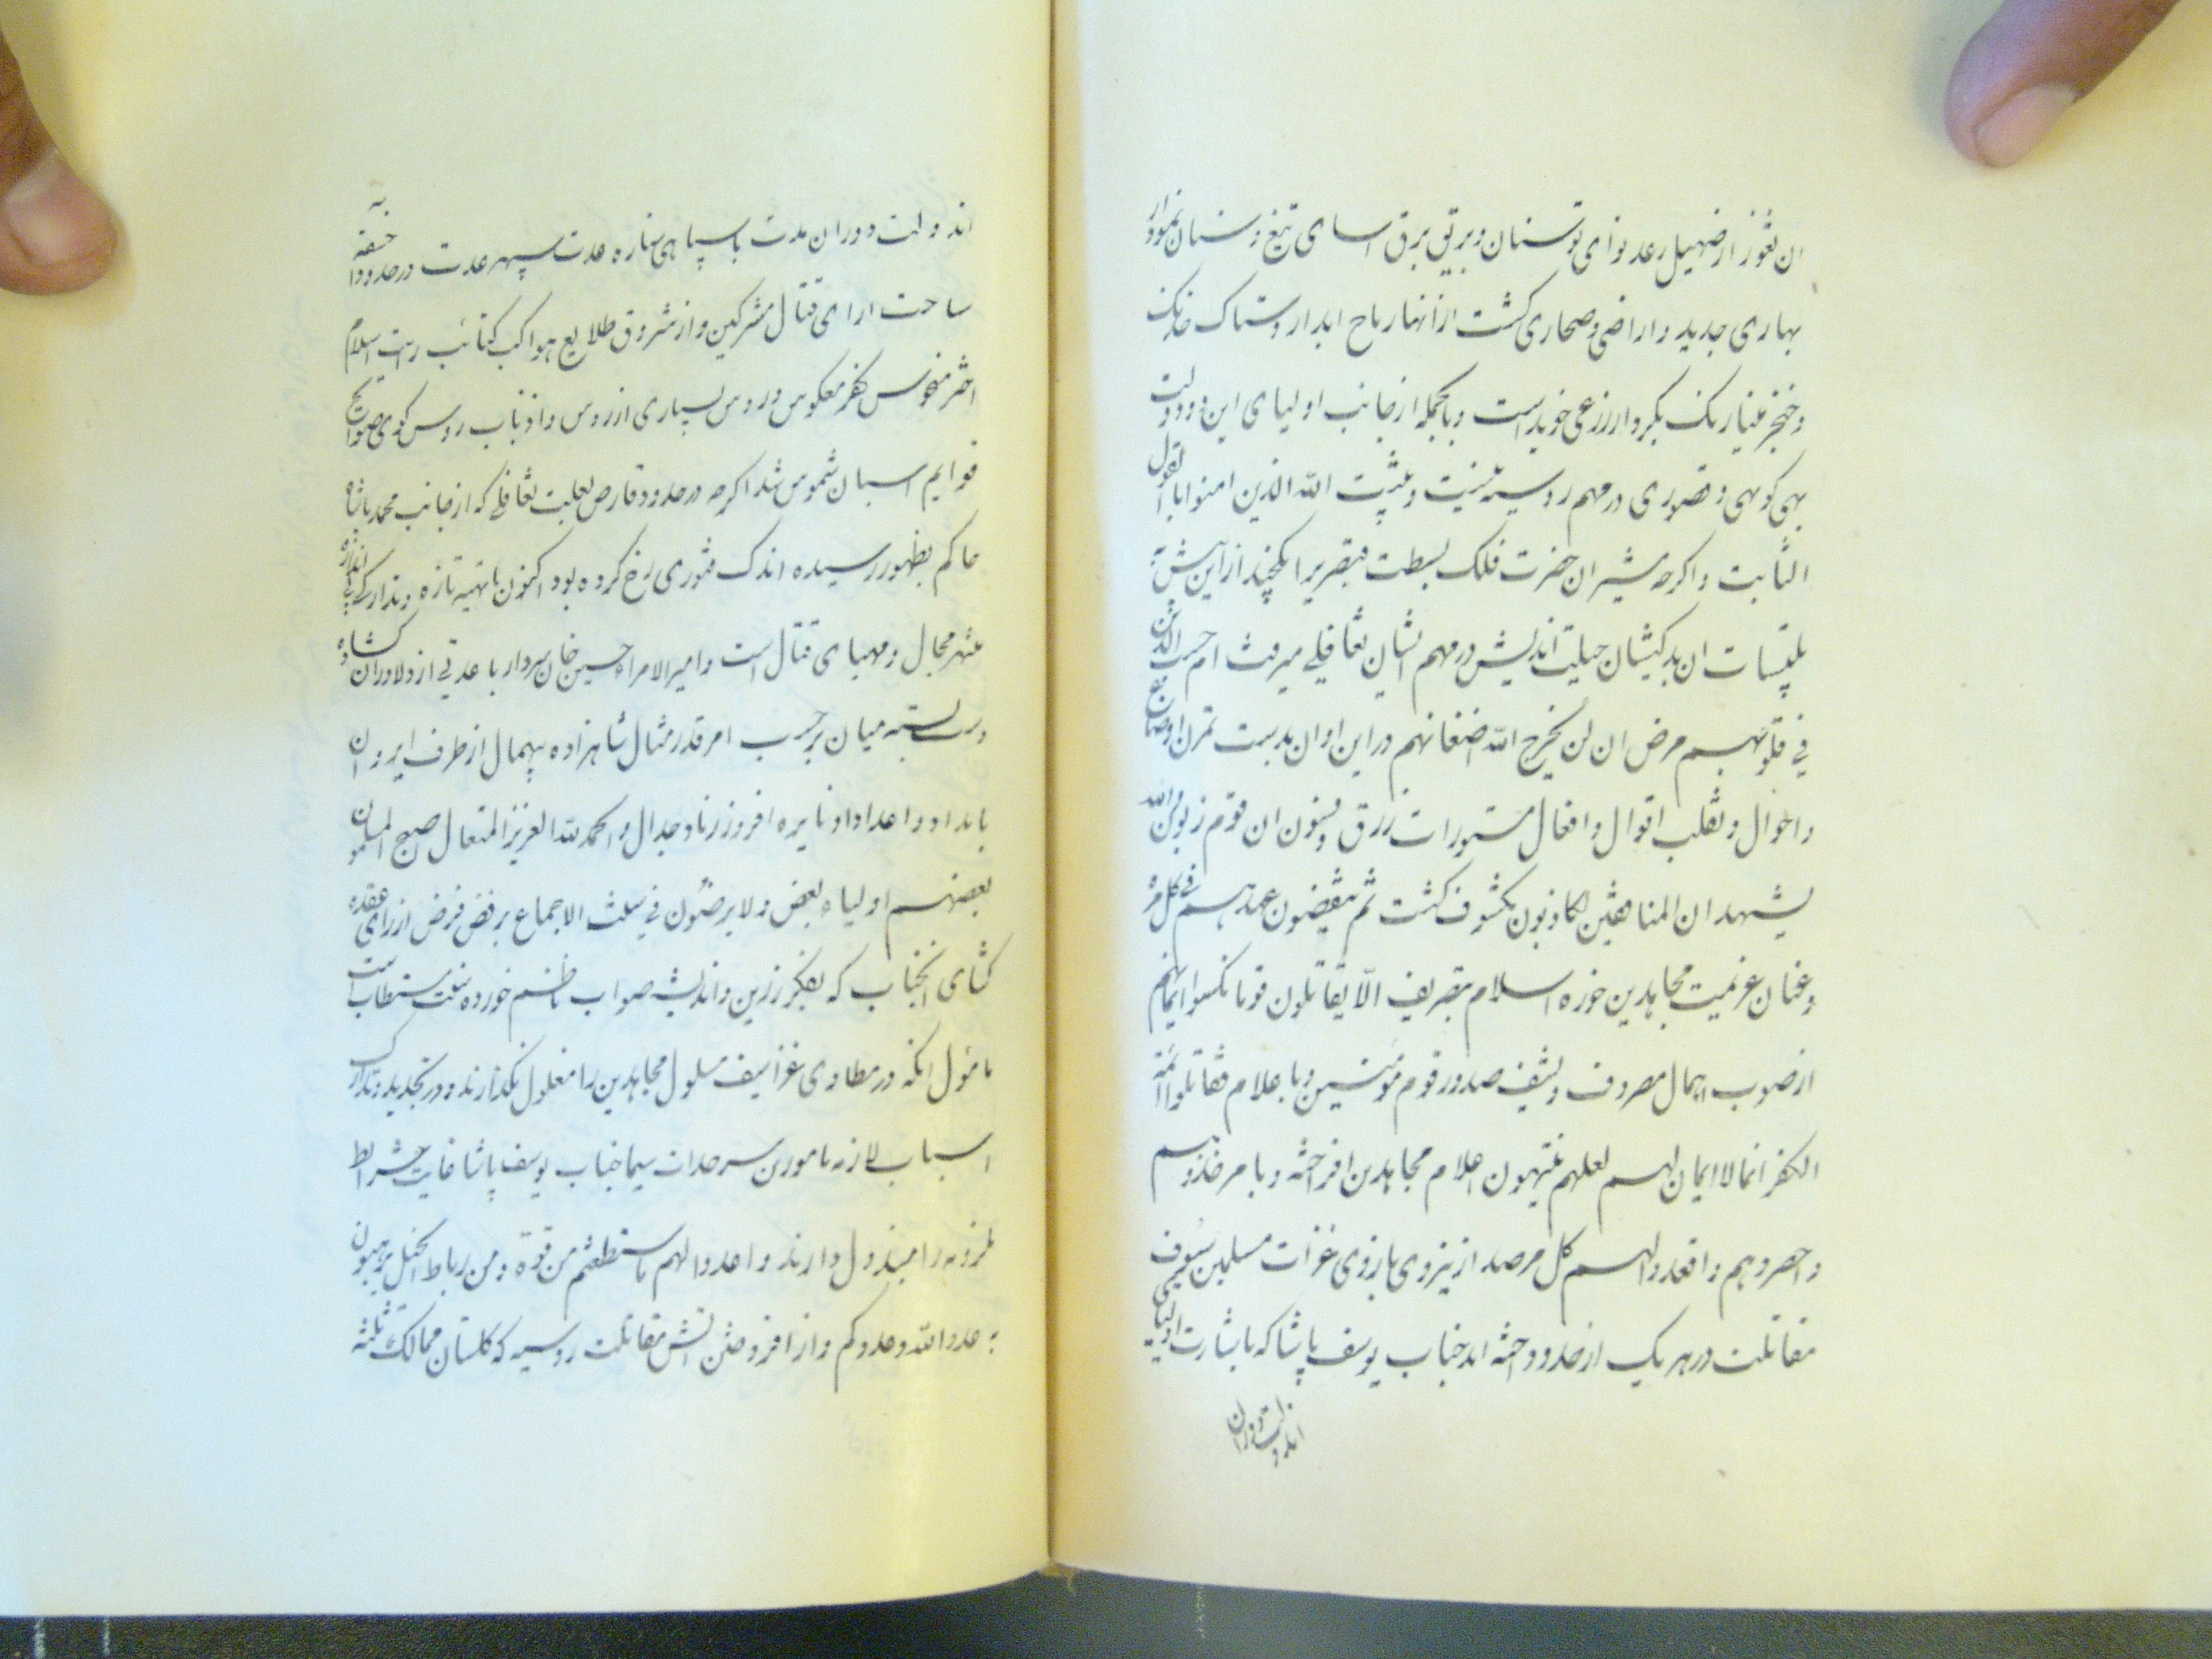 ان ثغور از صهیل رعد نوای توسنان و بریق برق اسای تیغ و سنان نمودار
بهاری جدید و اراضی و صحاری کشت از انهار رماح ابدار و
و خنجر مینارنک بکردار زرعی خوید است و بالجمله از جانب اولیای این دو دولت
بهی کوتهی و قصوری در مهم روسیه نیست و یثبت الله الذین امنوا بالقول
الثابت و اکرچه مشیران حضرت فلک بسطت قیصریرا یکچند ازین پیش به
تلبیسات ان بدکیشان حیلت اندیش در مهم ایشان تغافلی میرفت ام حسب الذین
فی قلوبهم مرض ان لن یخرج الله اضغانهم در این اوان بدست تمرن اوضاع
و احوال و تقلب اقوال و افعال مستورات زرق و فسون ان قوم زبون والله
یشهد ان المنافقین لکاذبون مکشوف کشت ثم ینقضون عهدهم فی کل مره
و عنان عزیمت مجاهدین حوزه اسلام بتصریف الا یقاتلون قوما نکثوا ایمانهم
از صوب اهمال مصروف و یشف صدور قوم مؤمنین و باعلام فقاتلوا ائمة
الکفر انما لا ایمان لهم لعلهم ینتهون اعلام مجاهدین افراخته و بامر خذوهم
و احصروهم و اقعدوا لهم کل مرصد از نیروی بازوی غزات مسلمین سیوف
مقاتلت در هر یک از حدود اخته اند جناب یوسف پاشا که باشارت اولیای
اندولت دوران
اندولت دوران مدت با سپاهی ستاره عدت سپهر عدت در حدود اخسقه
ساحت ارای قتال مشرکین و از شروق طلایع مواکب کتائب رایت اسلام
اختر منحوس کفر معکوس و روس بسیاری از روس و اذناب روس کوی صوالج
قوایم اسبان شموس شد اکرچه در حدود قارص بعلت تغافلی که از جانب محمد پاشا
حاکم بظهور رسیده اندک فتوری رخ کرده بود اکنون با تهیه تازه و تدارکی بی اندازه
منتهز مجال و مهیای قتال است و امیر الامراء حسین خان سردار با عدتی از دلاوران کشاده
دست بسته میان بر حسب امر قدر مثال شاهزاده بیهمال از طرف ایروان
بامداد و اعداد او نایره افروز زناد جدال و الحمد لله العزیز المتعال اصبح المسلمون
بعضهم اولیاء بعض و لا یرضون فی الاجماع برفض فرض از رای عقده
کشای انجناب که بفکر رزین و اندیشه صواب ناظم خورده است
مامول انکه در مطاوی غزا سیف مسلول مجاهدین را مغلول نکذارند و در تجدید و تدارک
اسباب لازمه مامورین سرحدات سیما جناب یوسف پاشا غایت شرایط
ملزومه را مبذول دارند و اعدوا لهم ما استطعتم من قوة و من رباط الخیل ترهبون
به عدو الله و عدوکم و از افروختن اتش مقاتلت روسیه که کلستان ممالک ثلثه